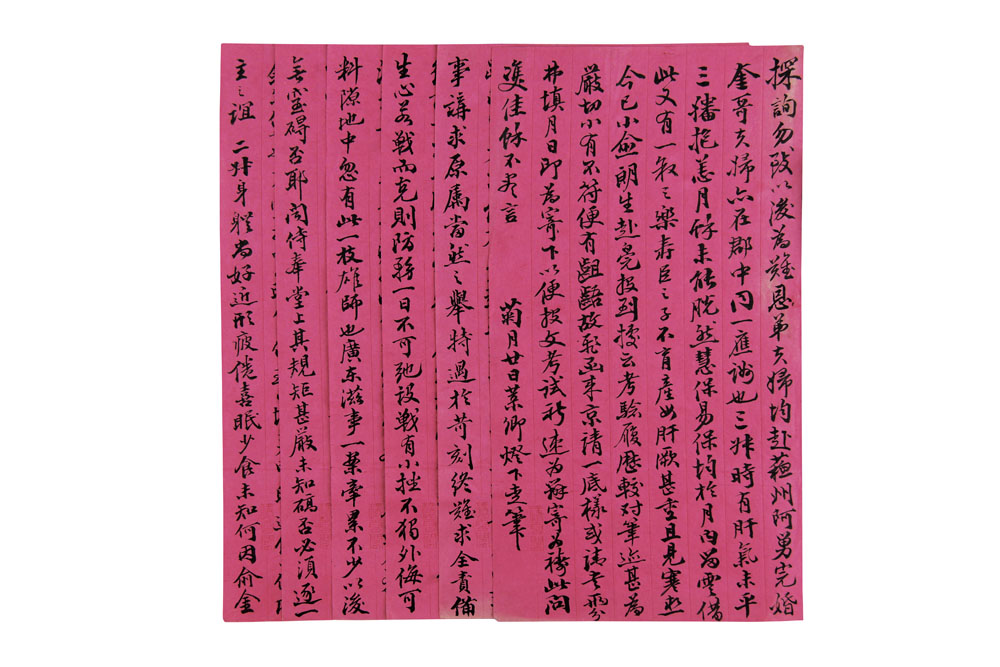 探詢勿致以後為難恩弟夫婦均赴蘇州阿勇完婚
奎哥夫婦亦在郡中同一應酬也三妹時有肝氣未平
三播抱恙月餘未能脫然慧保易保均於月內當雲借
此又有一叙之樂壽臣之子不育產此肝厥甚重且見寒熱
今已小愈朗生赴皖投到據云考驗履歷較對筆迹甚為
嚴切小有不符便有齟齬故飛函來京請一底樣或請老
弗填月日即為寄下以便投文考試祈速為辦寄為禱此問
雙佳餘不盡言 菊月廿日葉卿燈下走筆
事講求原屬當然之舉特過於苛刻終難求全責備
生心若戰而克則防務一日不可弛設戰有小挫不獨外侮可
料隙地中忽有此一枝雄師也廣東滋事一案牽累不少以後
無窒碍否耶閣侍奉堂上其規矩甚嚴未知碼否必須逐一
主之誼 二妹身體尚好近形疲倦喜眠少食未知何因俞金